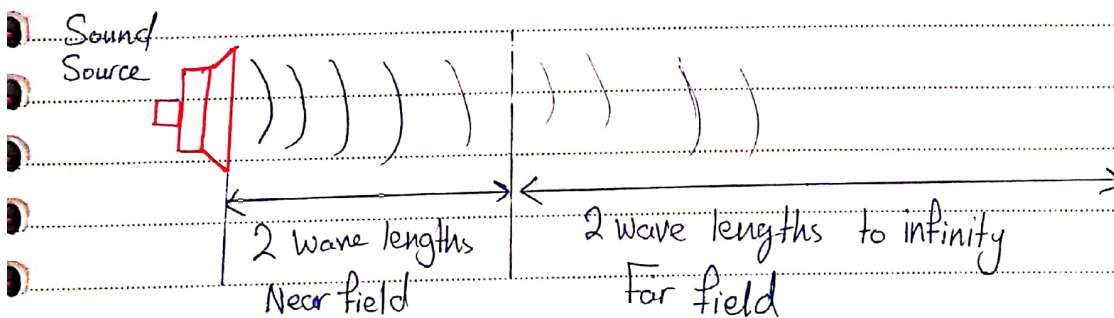 Sound
Source
2 wave lengths
Near field
2 wave lengths to infinity
Far field